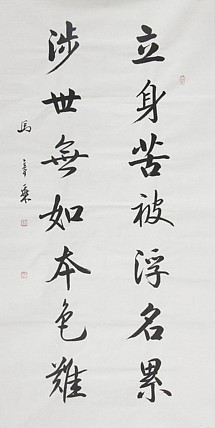 立身苦被浮名累
涉世無如本色難
馬